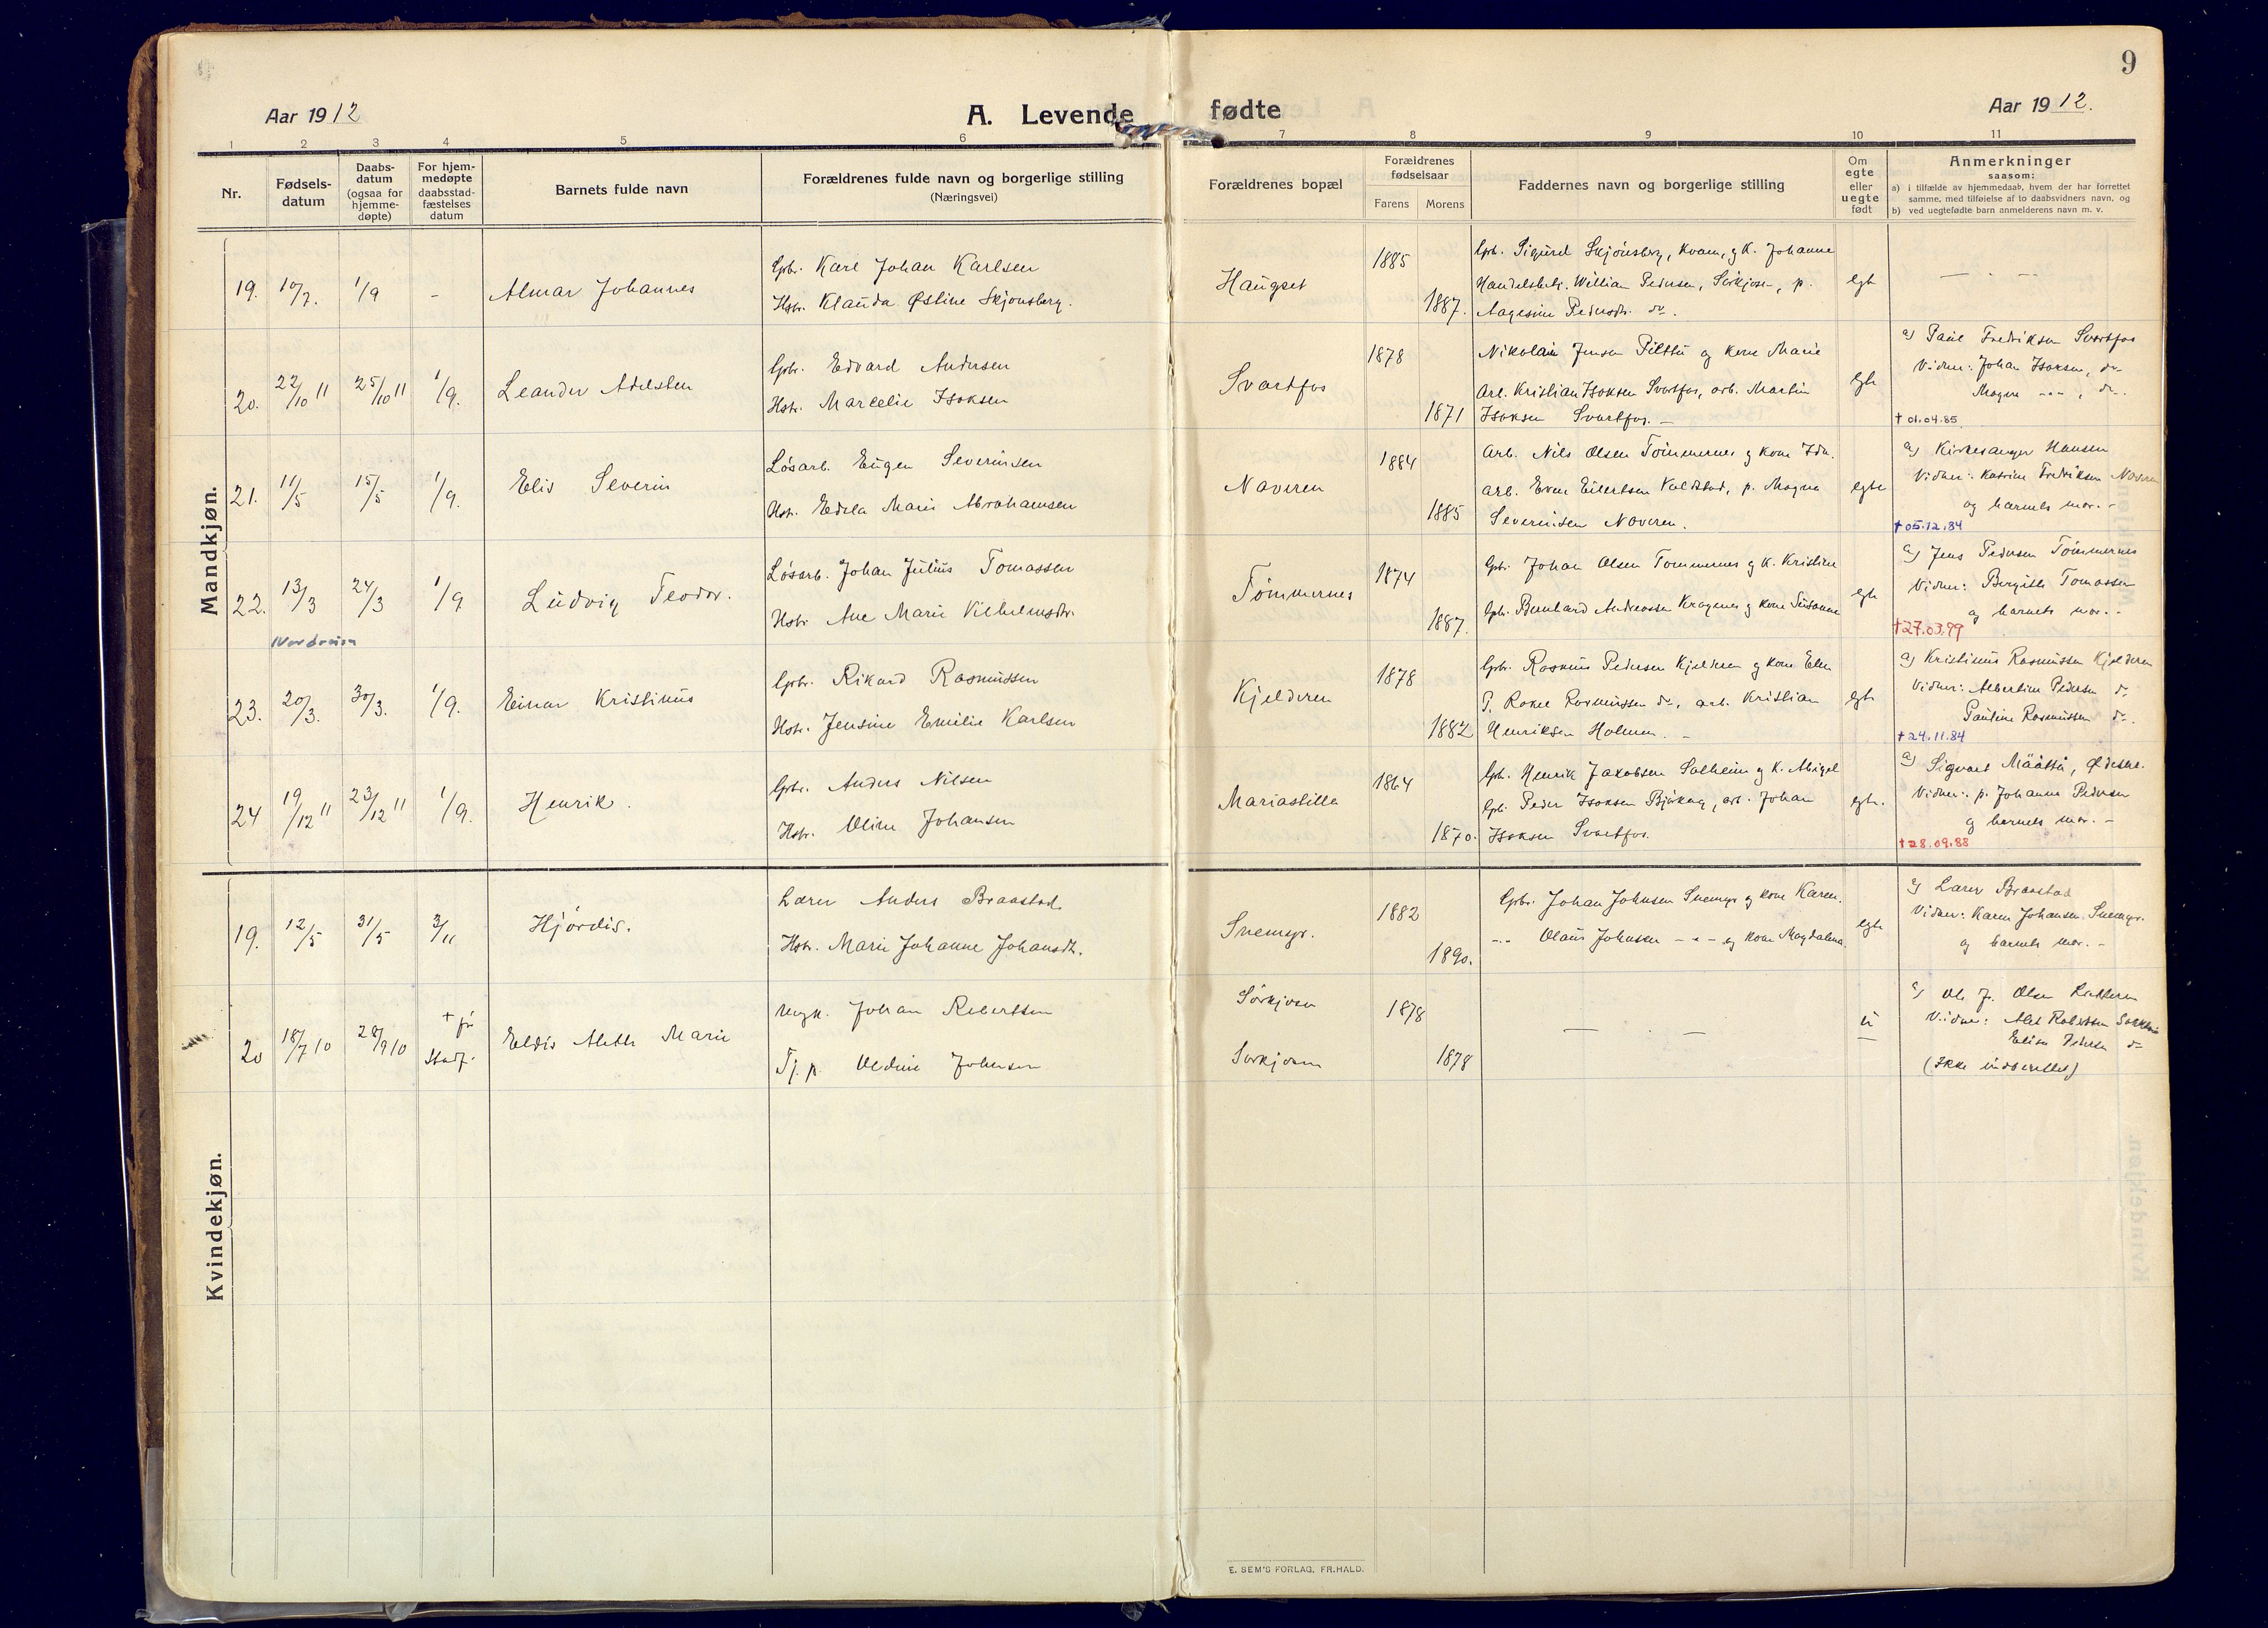 9
Aar 1912
A. Levende fødte
Aar 1912.
1 2 3 4 5 6 7 8 9 10 11
Nr.
Fødsels-
datum
Daabs-
datum
(ogsaa for
hjemme-
døpte)
For hjem-
medøpte
daabsstad-
fæstelses
datum
Barnets fulde navn
Forældrenes fulde navn og borgerlige stilling
(Næringsvei)
Forældrenes bopæl
Forældrenes
fødselsaar
Farens Morens
Faddernes navn og borgerlige stilling
Om
egte
eller
uegte
født
Anmerkninger
saasom:
a) i tilfælde av hjemmedaab, hvem der har forrettet
samme, med tilføielse af to daabsvidners navn, og
b) ved uegtefødte barn anmelderens navn m. v.
Mandkjøn.
19. 10/7. 1/9 -
Almar Johannes
Gbr. Karl Johan Karlsen
Hstr. Klauda Østine Skjonsberg.
Haugset
1885
1887.
Gbr. Sigurd Skjønsberg, Kvam, og K. Johanne
Handelsbetj. William Pedersen, Sørkjosen, p.
Aagesine Pedersdtr. do.
egte
- . -
20. 22/10 11 25/10 11 1/9.
Leander Adelsten
Gbr. Edvard Andersen
Hstr. Marcelie Isaksen
Svartfos
1878
1871
Nikolai Jensen Pilttu og kone Marie
Arb. Kristian Isaksen Svartfos, arb. Martin
Isaksen Svartfos. -
egte
a) Paul Fredriksen Svartfos
Vidner: Johan Isaksen, do
Magna -"- , do.
† 01.04.85
21. 11/5 15/5 1/9.
Elis Severin
Løsarb. Eugen Severinsen
Hstr. Edela Marie Abrahamsen
Naveren
1884
1885
Arb. Nils Olsen Tømmernes og kone Ida.
arb. Even Eilertsen Valdstad, p. Magna
Severinsen Naveren.
egte
a) Kirkesanger Hansen
Vidner: Katrine Fredriksen Naveren
og barnets mor. -
† 05.12.84
22. 13/3 24/3 1/9
Nordreisa
Ludvig Teodor.
Løsarb. Johan Julius Tomassen
Hstr. Ane Marie Vilhelmsdtr.
Tømmernes
1874
1887.
Gbr. Johan Olsen Tømmernes og K. Kristine
Gbr. Bernhard Andreassen Kragenes og kone Susanne
egte
a) Jens Pedersen Tømmernes
Vidner: Bergitte Tomassen
og barnets mor. -
† 27.03.99
23. 20/3. 30/3. 1/9.
Einar Kristinus
Gbr. Rikard Rasmussen
Hstr. Jensine Emilie Karlsen
Kjelderen
1878
1882
Gbr. Rasmus Pedersen Kjelderen og kone Elen
P. Rakel Rasmussen do, arb. Kristian
Henriksen Holmen. -
egte
a) Kristinus Rasmussen Kjelderen
Vidner: Albertine Pedersen do
Pauline Rasmussen do.
† 24.11.84
24 19/12 11 23/12 11 1/9.
Henrik.
Gbr. Anders Nilsen
Hstr. Oline Johansen
Mariastilla
1864
1870.
Gbr. Henrik Jakobsen Solheim og K. Abigel
Gbr. Peder Isaksen Bjørkeng, arb. Johan
Isaksen Svartfos.
egte.
a) Sigvart Määttä,
Vidner: p. Johanne Pedersen
og barnets mor. -
† 28.09.88
Kvindekjøn.
19. 12/5 31/5 3/11
Hjørdis.
Lærer Anders Braastad
Hstr. Marie Johanne Johansdtr.
Snemyr.
1882
1890.
Gbr. Johan Johnsen Snemyr og kone Karen.
-"- Olaus Johnsen -"- og kone Magdalena.
egte
a) Lærer Braastad
Vidner: Karen Johansen Snemyr.
og barnets mor. -
20 18/7 10 28/9 10 † før Stadf.
Eldis Aleth Marie
Ungk. Johan Robertsen
Tj. p. Oldine Johnsen
Sørkjosen
Sørkjosen
1878
1878
- -
u
a) Ole J. Olsen
Vidner: Alet Robertsen Sørkjosen
Elisa Pedersen do
(Ikke indberettet)
E. SEM'S FORLAG, FR.HALD.